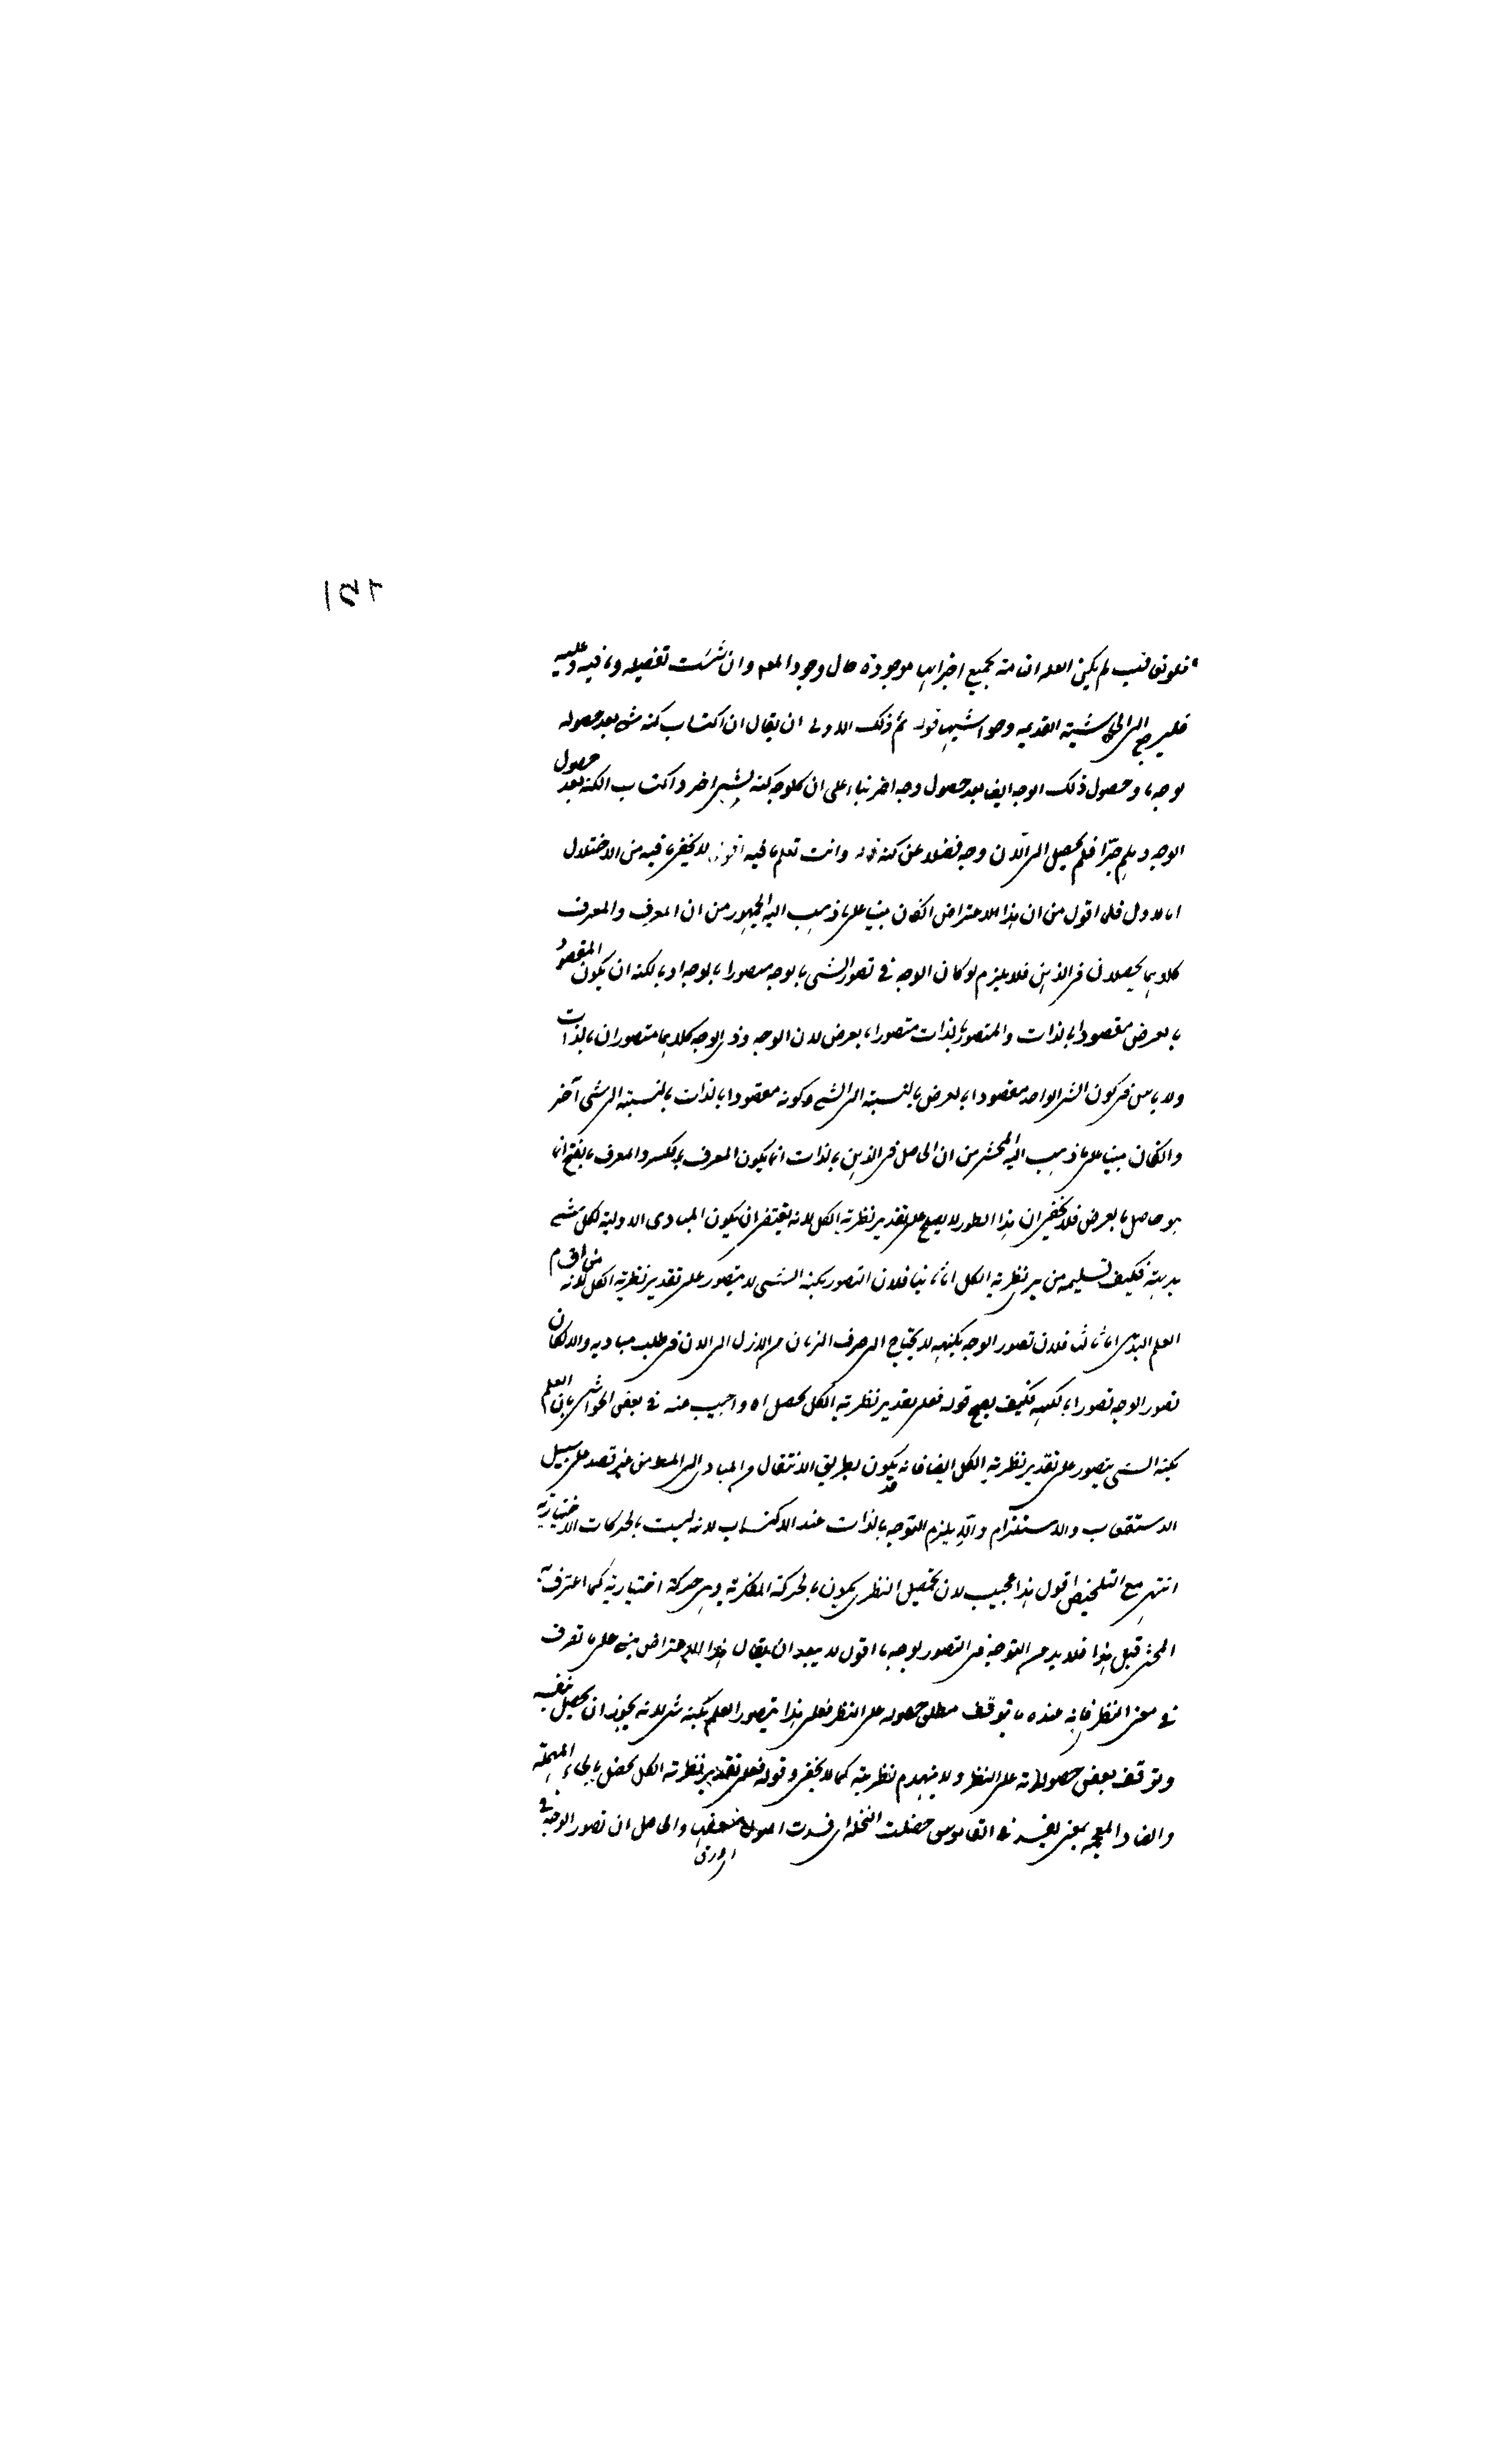 فلو تعاقبت لم يكن العلة التامة بجميع اجزائها موجودة حال وجود المعلول وان شئت تفصيله وما فيه وعليه
فليرجع الى الحاشية القديمة وحواشيها قوله ثم ذلك الاولى ان يقال ان اكتساب كنه شئ بعد حصوله
بوجه ما وحصول ذلك الوجه ايضا بعد حصول وجه اخر بناء على ان كل وجه كنه لشئ اخر واكتساب الكنه بعد حصول
الوجه وهلم جرا فلم يحصل الى الآن وجه فضلا عن كنه قوله وانت تعلم ما فيه اقول لا يخفى ما فيه من الاختلال
اما الاول فلما اقول من ان هذا الاعتراض انكان مبنيا على ما ذهب اليه الجمهور من ان المعرف والمعرف
كلاهما يحصلان فى الذهن فلا يلزم لو كان الوجه فى تصور الشئ بالوجه متصورا بالوجه او بالكنه ان يكون المقصود
بالعرض مقصودا بالذات والمتصور بالذات متصورا بالعرض لان الوجه وذى الوجه كلاهما متصوران بالذات
ولا باس فى كون الشئ الواحد مقصودا بالعرض بالنسبة الى الشئ وكونه مقصودا بالذات بالنسبة الى شئ آخر
وانكان مبنيا على ما ذهب اليه المحشى من ان الحاصل فى الذهن بالذات انما يكون المعرف بالكسر والمعرف بالفتح انما
هو حاصل بالعرض فلا يخفى ان هذا الطور لا يصح على تقدير نظرية الكل لانه يقتضى ان يكون المبادى الاولية لكل شئ
بديهة فكيف تسليمه من نظرية الكل اما ثانيا فلان التصور بكنه الشئ لا يتصور على تقدير نظرية الكل لانه من اقسام
العلم البديهى اما ثالثا فلان تصور الوجه بكنهه لا يحتاج الى صرف الزمان من الازل الى الان فى طلب مباديه والا لكان
تصور الوجه تصورا بالكنه فكيف يصح قوله فعلى تقدير نظرية الكل يحصل اه واجيب عنه فى بعض الحواشى بان العلم
بكنه الشئ يتصور على تقدير نظرية الكل ايضا فانه قد يكون بطريق الانتقال من المبادى الى المطلوب من غير قصد على سبيل
الاستعقاب والاستلزام والا يلزم التوجه بالذات عند الاكتساب لانه ليست بالحركات الاختيارية
انتهى مع التلخيص اقول هذا عجيب لان تحصيل النظرى يكون بالحركة الفكرية وهى حركة اختيارية كما اعترف به
المحشى قبل هذا فلا بد من التوجه فى التصور بوجه ما اقول لا يبعد ان يقال هذا الاعتراض مبنى على ما تعرف
فى معنى النظر فانه عنده ما يتوقف مطلق حصوله على النظر فعلى هذا يتصور العلم بكنه شئ لانه يجوز ان يحصل بنفسه
ويتوقف بعض حصولاته على النظر ولا ينهدم نظريته كما لا يخفى وقوله فعلى تقدير نظرية الكل يحضل بالحاء المهملة
والضاد المعجمة بمعنى يفسد فى القاموس حضلت النخلة اى فسدت اصول سعفها والحاصل ان تصور الوجه فى